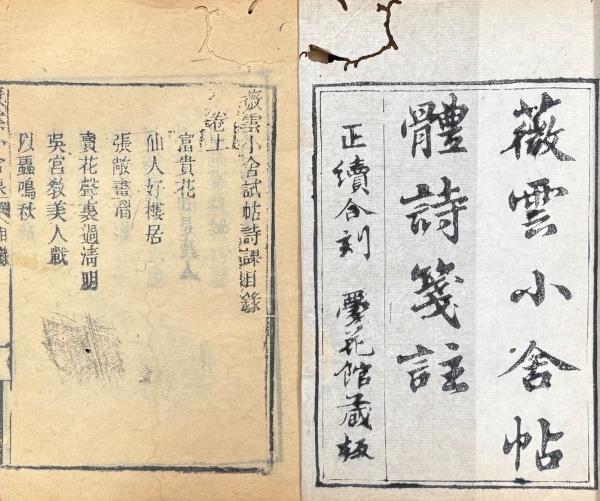 薇雲小舍帖
體詩箋註
正續合刻
藏板
薇雲小舍試帖詩課目錄
卷上
富貴花
仙人好樓居
張敞畫眉
賣花聲裏過清明
吳宮教美人戰
以蟲鳴秋